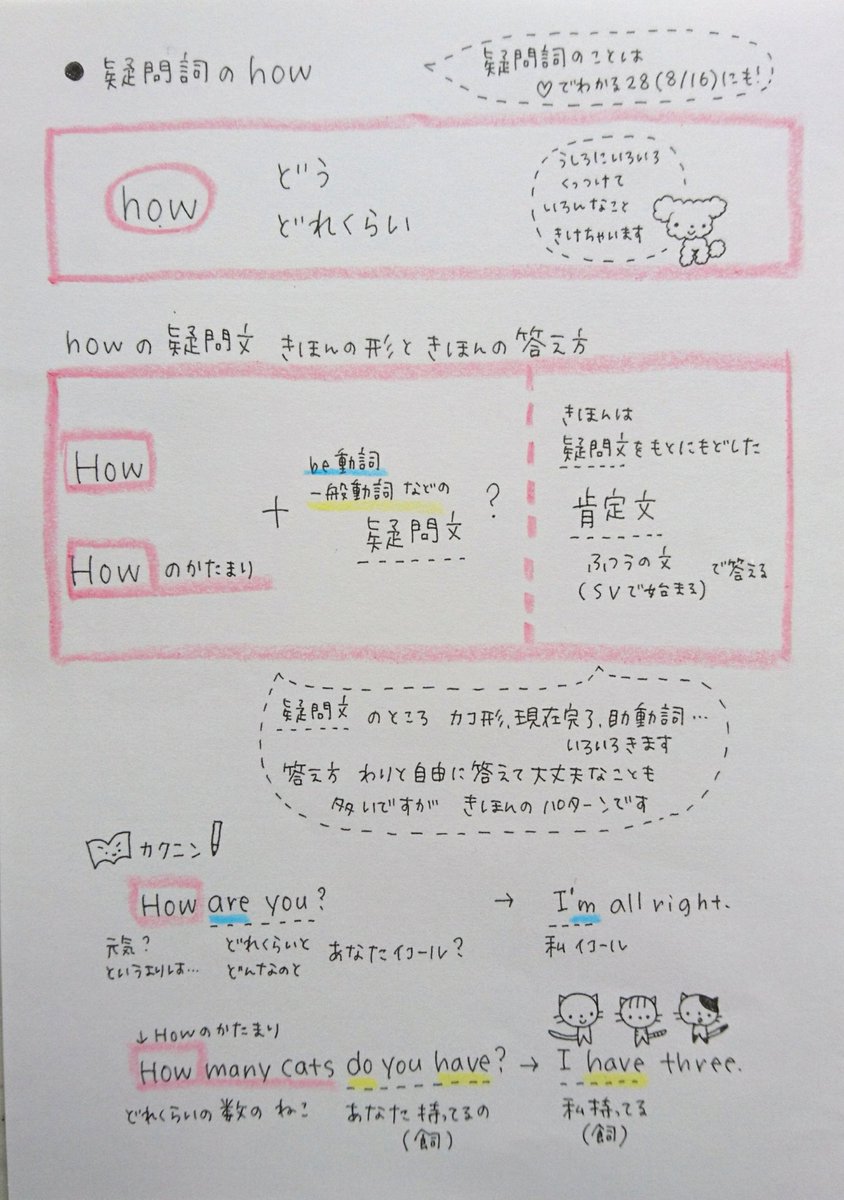 ● 疑問詞のhow
疑問詞のことは
♡でわかる28(8/16)にも!
how
どう
どれくらい
うしろにいろいろ
くっつけて
いろんなこと
きけちゃいます
howの疑問文 きほんの形ときほんの答え方
How
Howのかたまり
+
be動詞
一般動詞などの
疑問文
?
きほんは
疑問文をもとにもどした
肯定文
ふつうの文
(SVで始まる)
で答える
疑問文のところ カコ形、現在完了、助動詞…
いろいろきます
答え方 わりと自由に答えて大丈夫なことも
多いですが きほんのパターンです
カクニン
How are you? → I'm all right.
元気?
というよりは…
どれくらいと
どんなのと
あなたイコール?
私イコール
↓Howのかたまり
How many cats do you have? → I have three.
どれくらいの数のねこ
あなた持ってるの
(飼)
私持ってる
(飼)